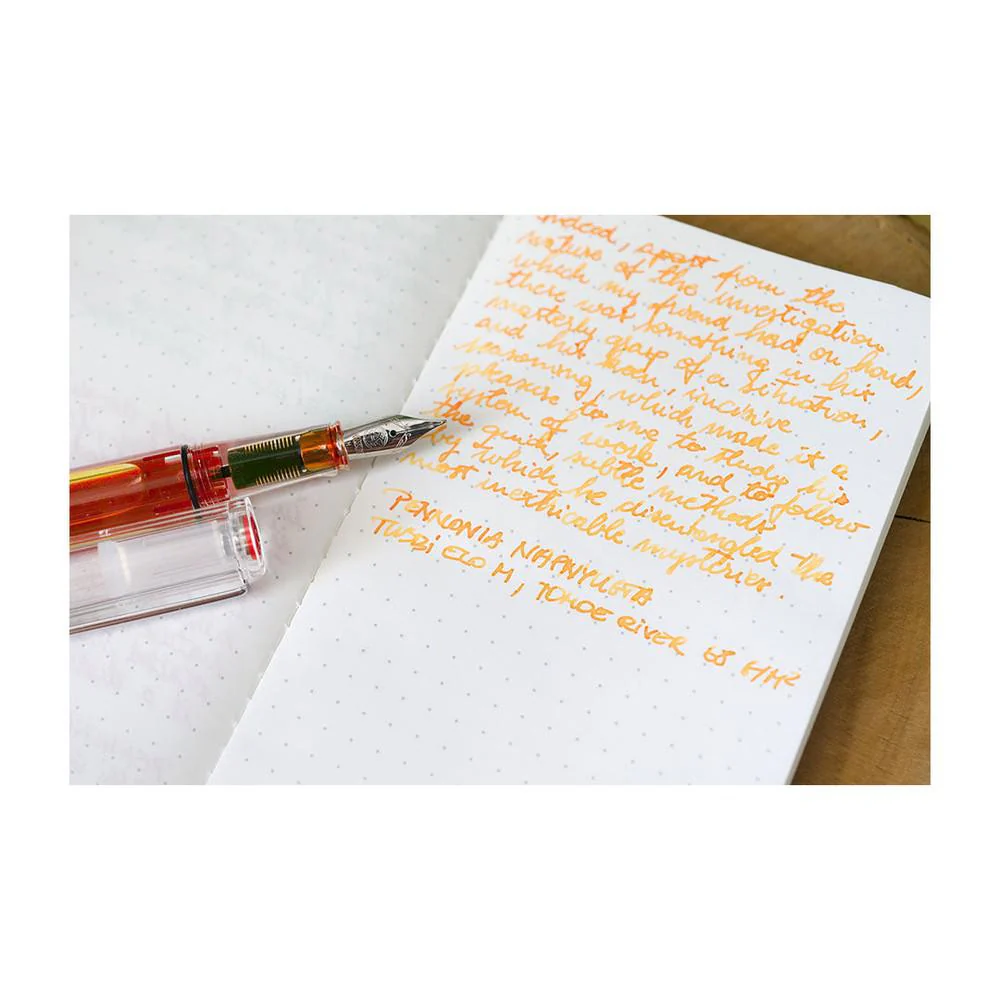 Indeed, apart from the
nature of the investigation
which my friend had on hand,
there was something in his
masterly grasp of a situation,
and his keen, incisive
reasoning, which made it a
pleasure to me to study his
system of work, and to follow
the quick, subtle methods
by which he disentangled the
most inextricable mysteries.
PENNONIA NAPNYUGTA
TWSBI ECO M, TOMOE RIVER 68 G/M²